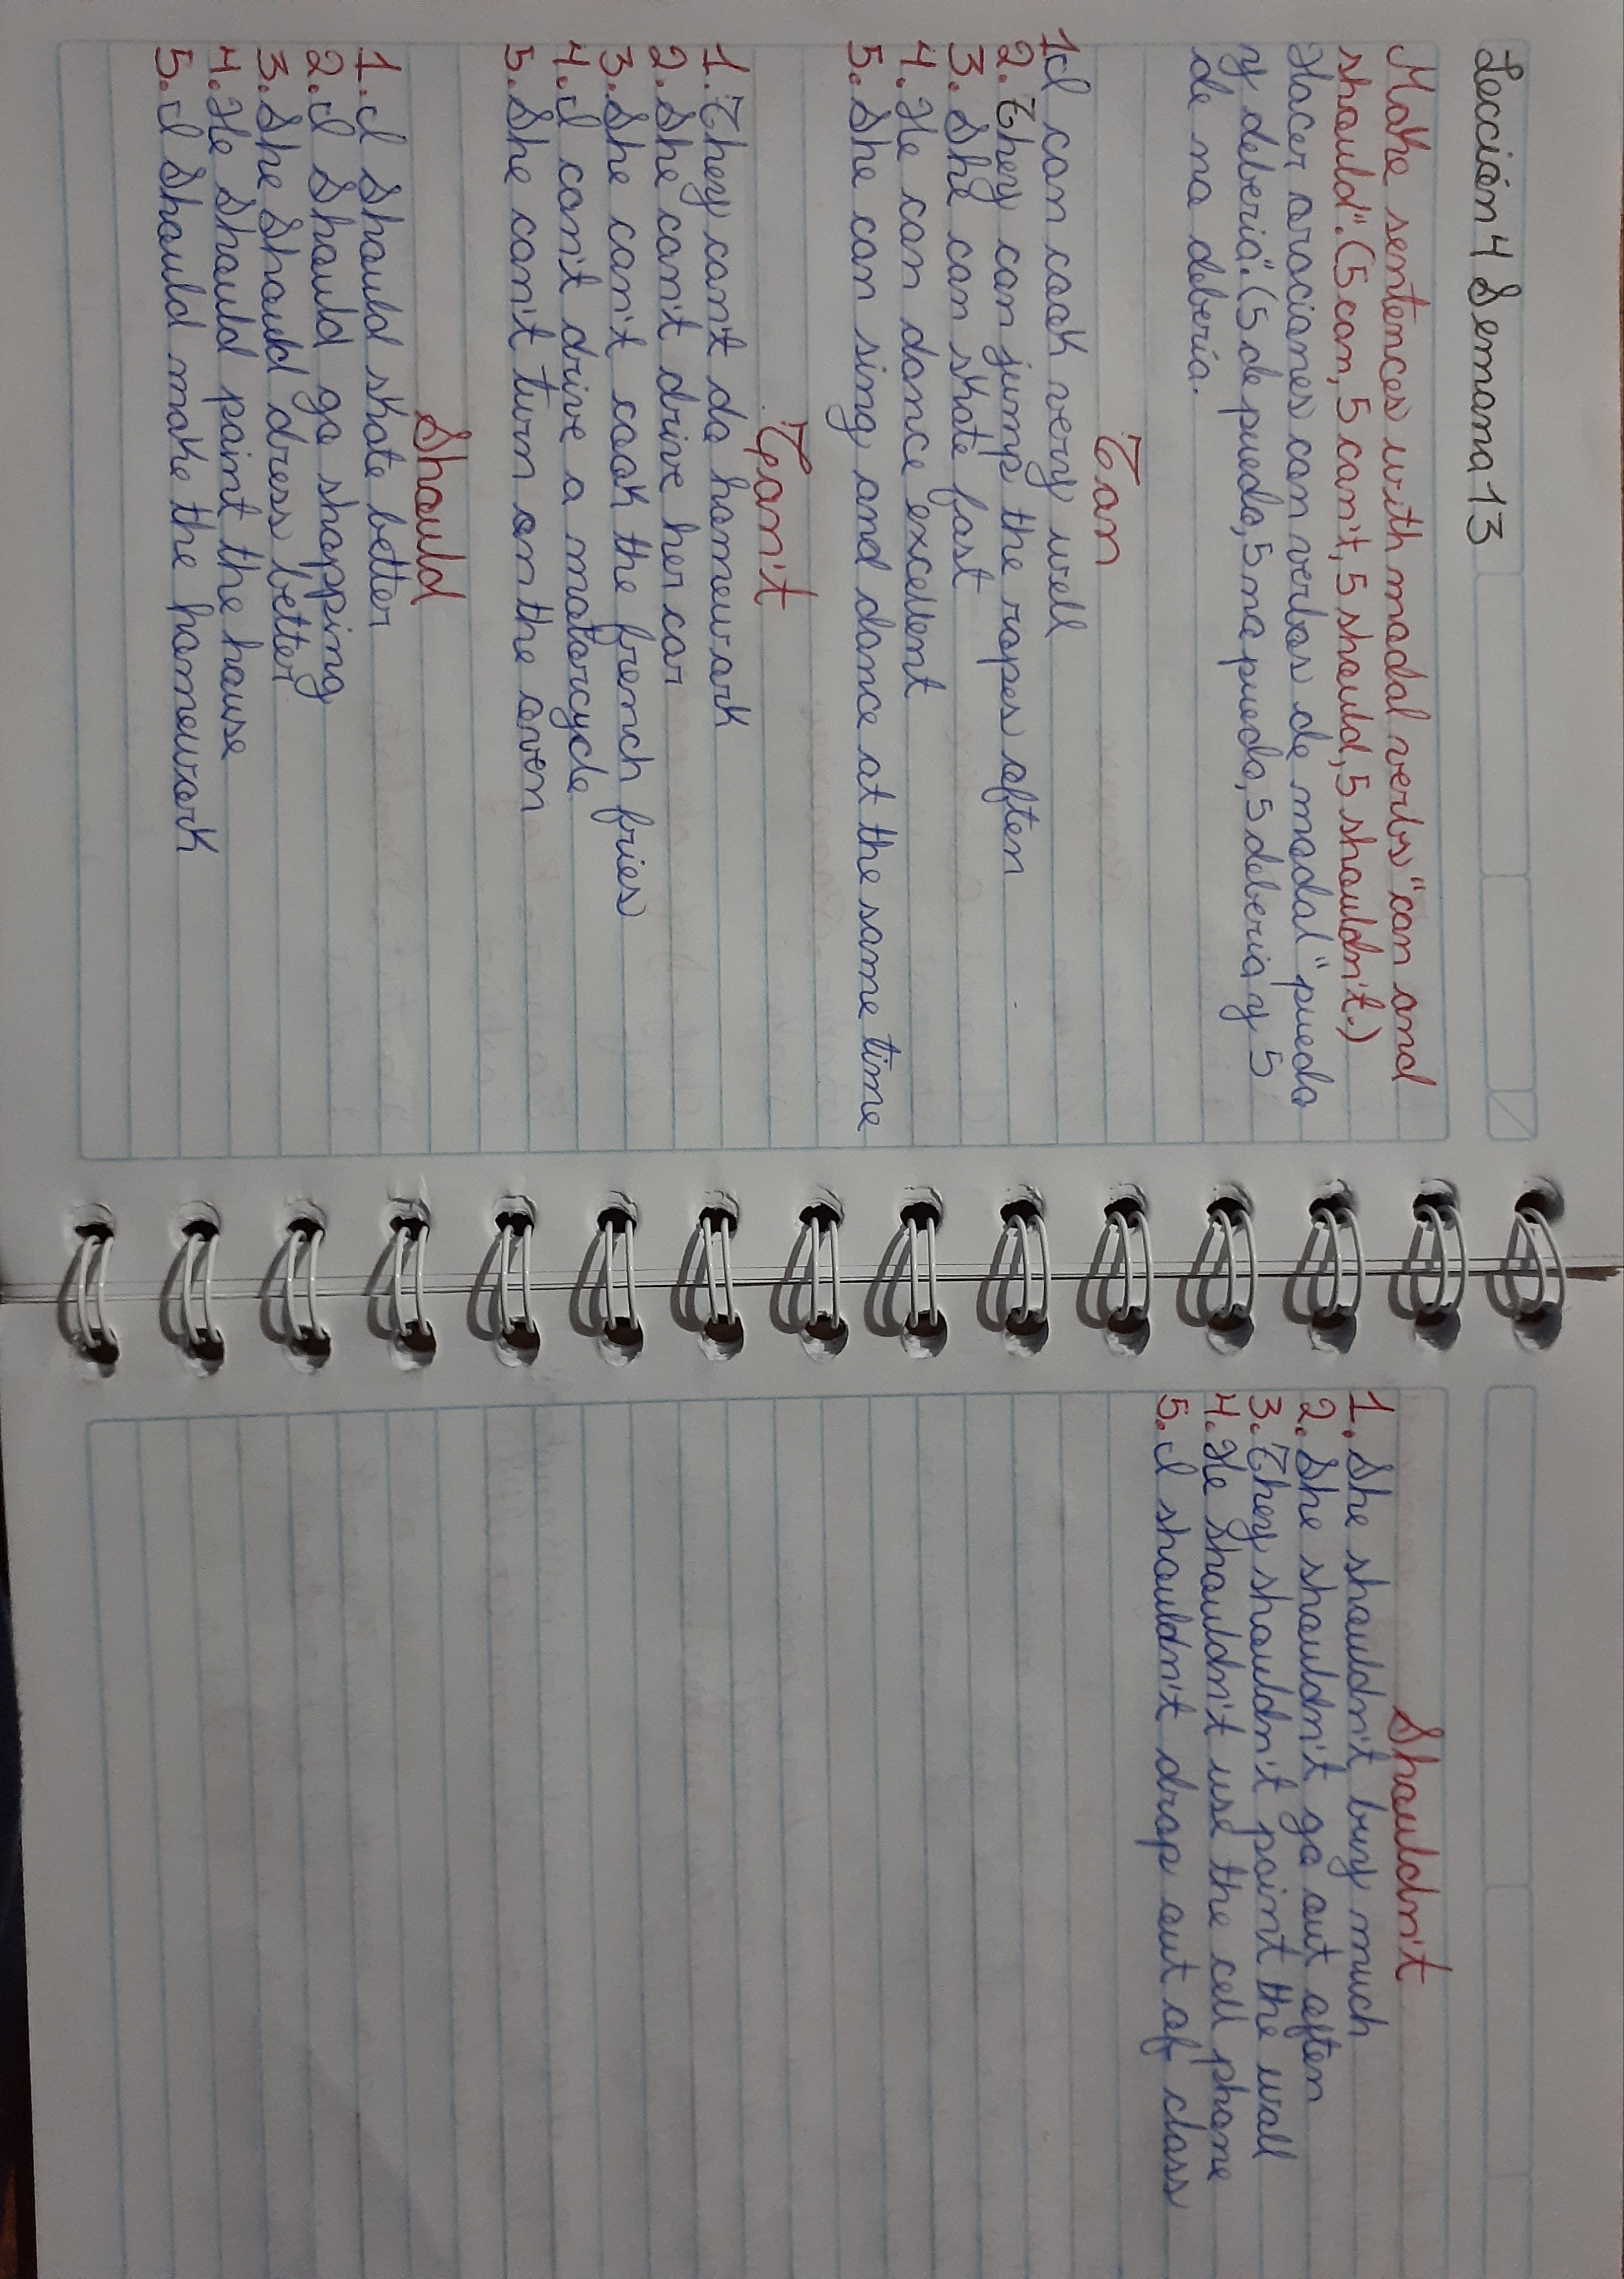 Lección 4 Semana 13
Make sentences with modal verbs "can and
should". (5 can, 5 can't, 5 should, 5 shouldn't.)
Hacer oraciones con verbos de modal "puedo
y deberia". (5 de puedo, 5 no puedo, 5 deberia y 5
de no deberia.
Can
1. I can cook very well
2. They can jump the ropes often
3. She can skate fast
4. He can dance excellent
5. She can sing and dance at the same time
Can't
1. They can't do homework
2. She can't drive her car
3. She can't cook the french fries
4. I can't drive a motorcycle
5. She can't turn on the oven
Should
1. I Should skate better
2. I Should go shopping
3. She Should dress better
4. He Should paint the house
5. I Should make the homework
Shouldn't
1. She shouldn't buy much
2. She shouldn't go out often
3. They shouldn't paint the wall
4. He shouldn't use the cell phone
5. I shouldn't drop out of class